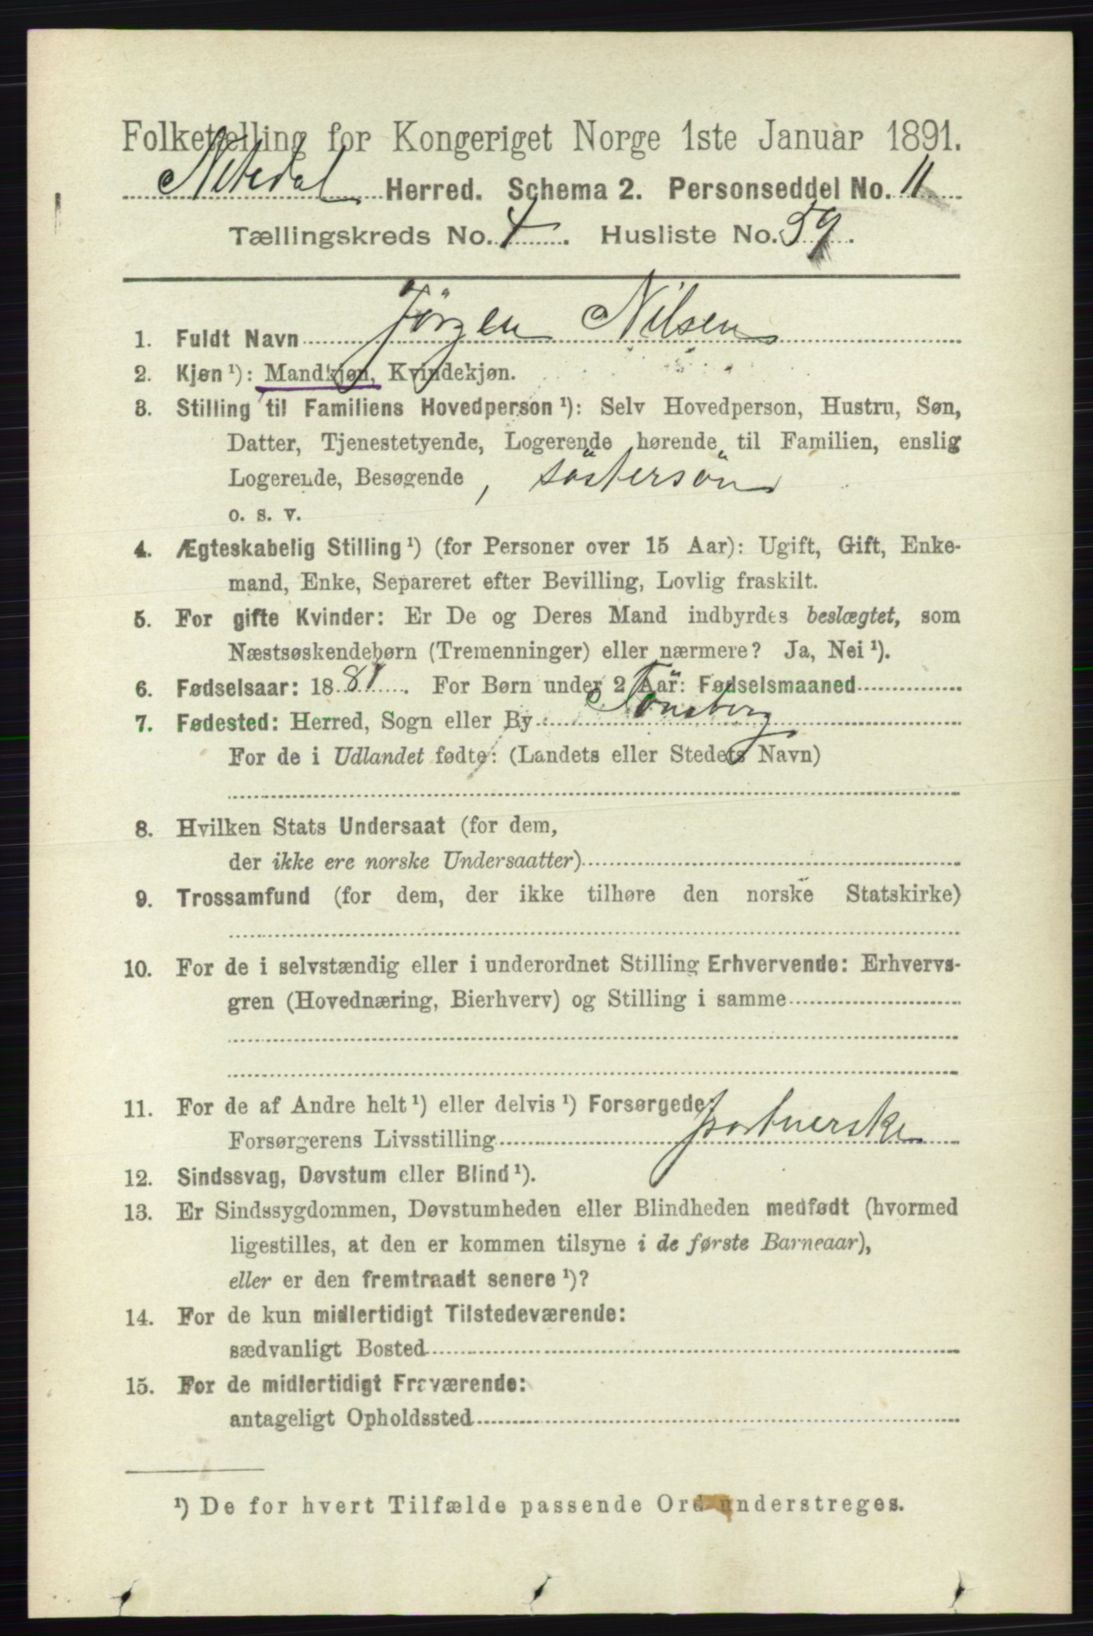 Folketælling for Kongeriget Norge 1ste Januar 1891.
Nitedal Herred. Schema 2. Personseddel No. 11
Tællingskreds No. 4. Husliste No. 59.
1. Fuldt Navn Jörgen Nilsen
2. Kjøn¹): Mandkjøn, Kvindekjøn.
3. Stilling til Familiens Hovedperson¹): Selv Hovedperson, Hustru, Søn,
Datter, Tjenestetyende, Logerende hørende til Familien, enslig
Logerende, Besøgende, söstersön
o. s. v.
4. Ægteskabelig Stilling¹) (for Personer over 15 Aar): Ugift, Gift, Enke-
mand, Enke, Separeret efter Bevilling, Lovlig fraskilt.
5. For gifte Kvinder: Er De og Deres Mand indbyrdes beslægtet, som
Næstsøskendebørn (Tremenninger) eller nærmere? Ja, Nei¹).
6. Fødselsaar: 1881. For Børn under 2 Aar: Fødselsmaaned
7. Fødested: Herred, Sogn eller By Tönsberg
For de i Udlandet fødte: (Landets eller Stedets Navn)
8. Hvilken Stats Undersaat (for dem,
der ikke ere norske Undersaatter)
9. Trossamfund (for dem, der ikke tilhøre den norske Statskirke)
10. For de i selvstændig eller i underordnet Stilling Erhvervende: Erhvervs-
gren (Hovednæring, Bierhverv) og Stilling i samme
11. For de af Andre helt¹) eller delvis¹) Forsørgede:
Forsørgerens Livsstilling portnerske
12. Sindssvag, Døvstum eller Blind¹).
13. Er Sindssygdommen, Døvstumheden eller Blindheden medfødt (hvormed
ligestilles, at den er kommen tilsyne i de første Barneaar),
eller er den fremtraadt senere¹)?
14. For de kun midlertidigt Tilstedeværende:
sædvanligt Bosted
15. For de midlertidigt Fraværende:
antageligt Opholdssted
¹) De for hvert Tilfælde passende Ord understreges.